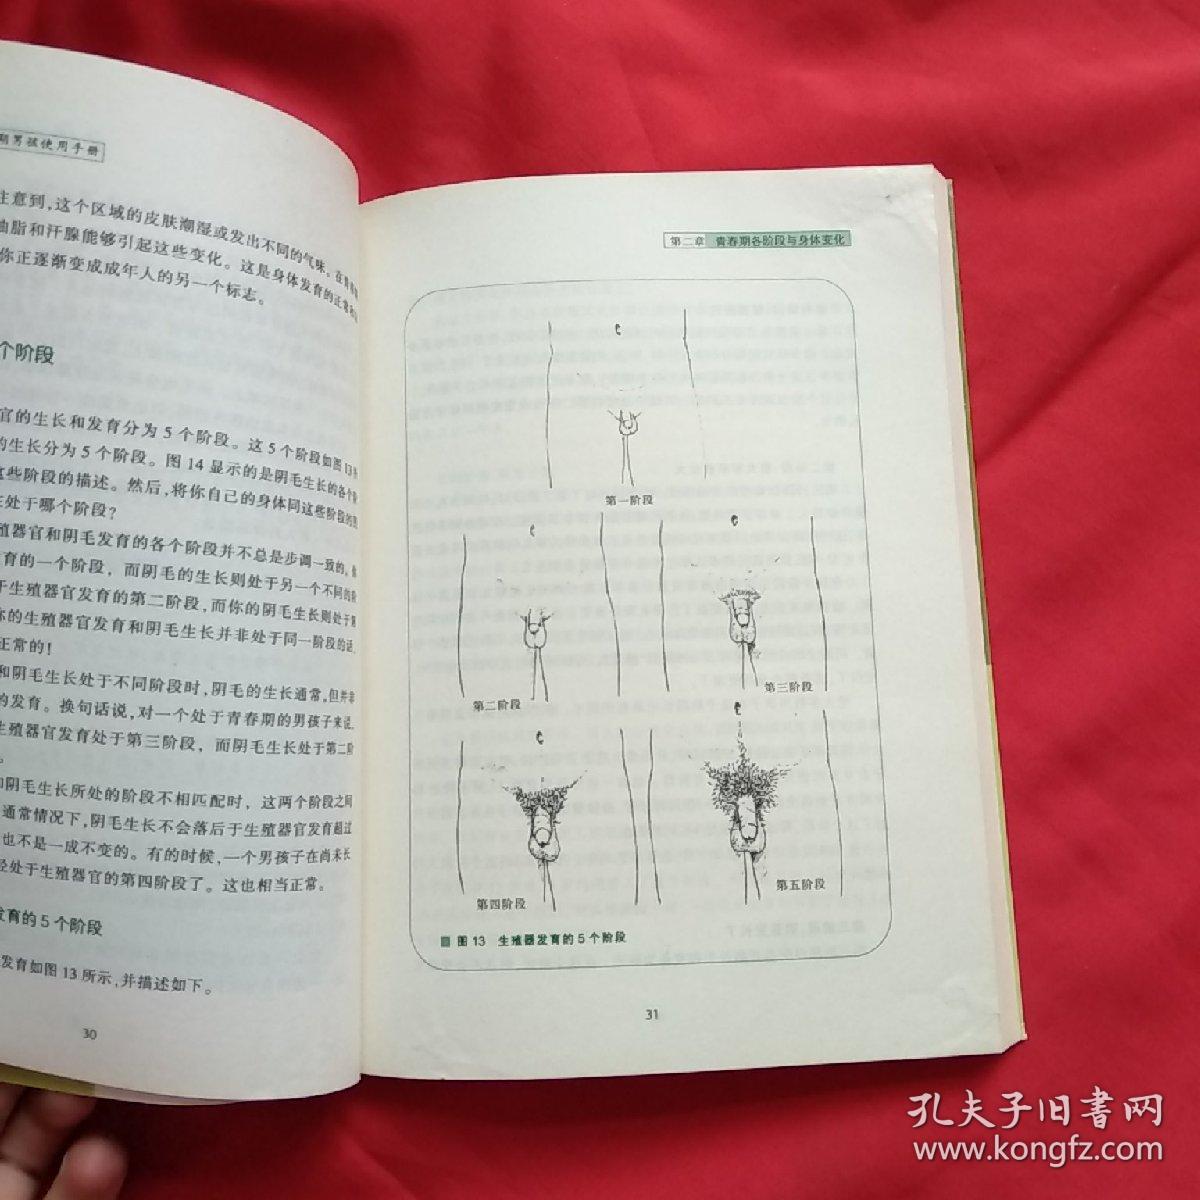 期男孩使用手册
注意到,这个区域的皮肤潮湿或发出不同的气味。在青
油脂和汗腺能够引起这些变化。这是身体发育的正常
你正逐渐变成成年人的另一个标志。
个阶段
官的生长和发育分为5个阶段。这5个阶段如图13所
的生长分为5个阶段。图14显示的是阴毛生长的各个阶
这些阶段的描述。然后,将你自己的身体同这些阶段的图
在处于哪个阶段?
殖器官和阴毛发育的各个阶段并不总是步调一致的。你
育的一个阶段,而阴毛的生长则处于另一个不同的阶
于生殖器官发育的第二阶段,而你的阴毛生长则处于第
你的生殖器官发育和阴毛生长并非处于同一阶段的话,
正常的!
和阴毛生长处于不同阶段时,阴毛的生长通常,但并非
的发育。换句话说,对一个处于青春期的男孩子来说,
生殖器官发育处于第三阶段,而阴毛生长处于第二阶
。
和阴毛生长所处的阶段不相匹配时,这两个阶段之间
通常情况下,阴毛生长不会落后于生殖器官发育超过
也不是一成不变的。有的时候,一个男孩子在尚未长
经处于生殖器官的第四阶段了。这也相当正常。
发育的5个阶段
发育如图13所示,并描述如下。
30
第二章 青春期各阶段与身体变化
第一阶段
第二阶段
第三阶段
第四阶段
第五阶段
图13 生殖器发育的5个阶段
31
孔夫子旧书网
www.kongfz.com